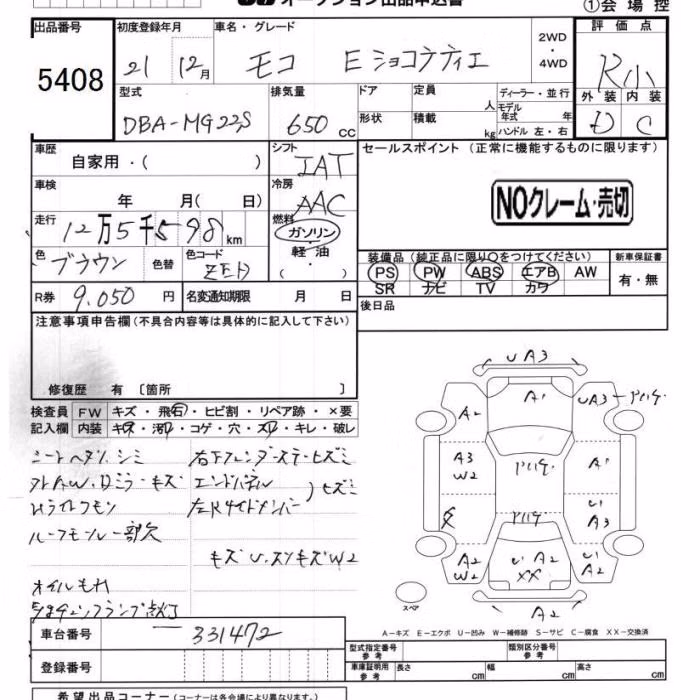 オークション出品申込書
①会場控
出品番号
5408
初度登録年月
21 12月
車名・グレード
モコ Eショコラティエ
2WD・4WD
評価点
R小
外装 内装
D C
型式
DBA-MG22S
排気量
650 CC
ドア
形状
定員
人
積載
kg
ディーラー・並行
モデル年式 年
ハンドル 左・右
車歴
自家用・( )
シフト
IAT
セールスポイント(正常に機能するものに限ります)
NOクレーム・売切
車検
年 月( 日)
冷房
AAC
走行
12万5千598km
燃料
ガソリン・軽油・( )
色
ブラウン
色替
色コード
ZED
装備品(純正品に限り○をつけてください)
PS PW ABS エアB AW
SR ナビ TV カワ
新車保証書
有・無
R券
9.050円
名変通知期限 月 日
後日品
注意事項申告欄(不具合内容等は具体的に記入して下さい)
修復歴 有 [箇所 ]
検査員記入欄
FW キズ・飛石・ヒビ割・リペア跡・×要
内装 キズ・汚レ・コゲ・穴・スレ・キレ・破レ
シートヘタリ、シミ
外A.W.Dミラーキズ
Hライトクモリ
ルーフモール一部欠
オイルもれ
右下フェンダーステーヒズミ
エンドパネル
左Rサイドメンバー
ヒズミ
キズU.スリキズW2
UA3
A1
A2
UA3
A3
W2
A1
A3
A2
W2
A2
××
A2
A2
スペア
A−キズ E−エクボ U−凹み W−補修跡 S−サビ C−腐食 XX−交換済
車台番号
331472
登録番号
型式指定番号 参考
類別区分番号 参考
車庫証明用 参考
長さ cm
幅 cm
高さ cm
希望出品コーナー(コーナーは各会場により異なります。)